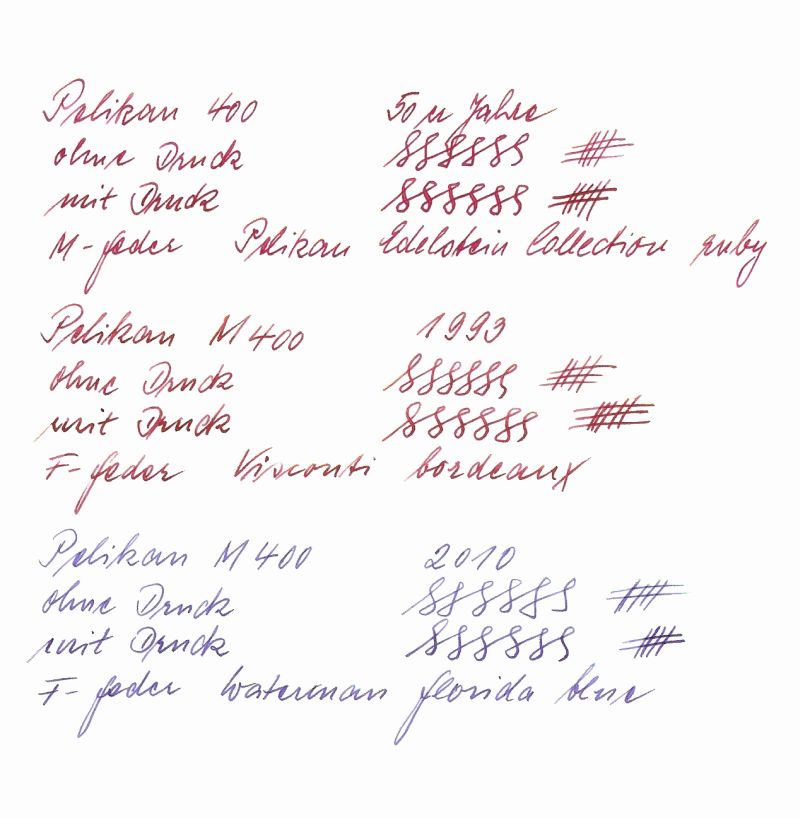 Pelikan 400 50 er Jahre
ohne Druck
mit Druck
M-feder Pelikan Edelstein Collection ruby
Pelikan M400 1993
ohne Druck
mit Druck
F-feder Visconti bordeaux
Pelikan M400 2010
ohne Druck
mit Druck
F-feder Waterman florida blue